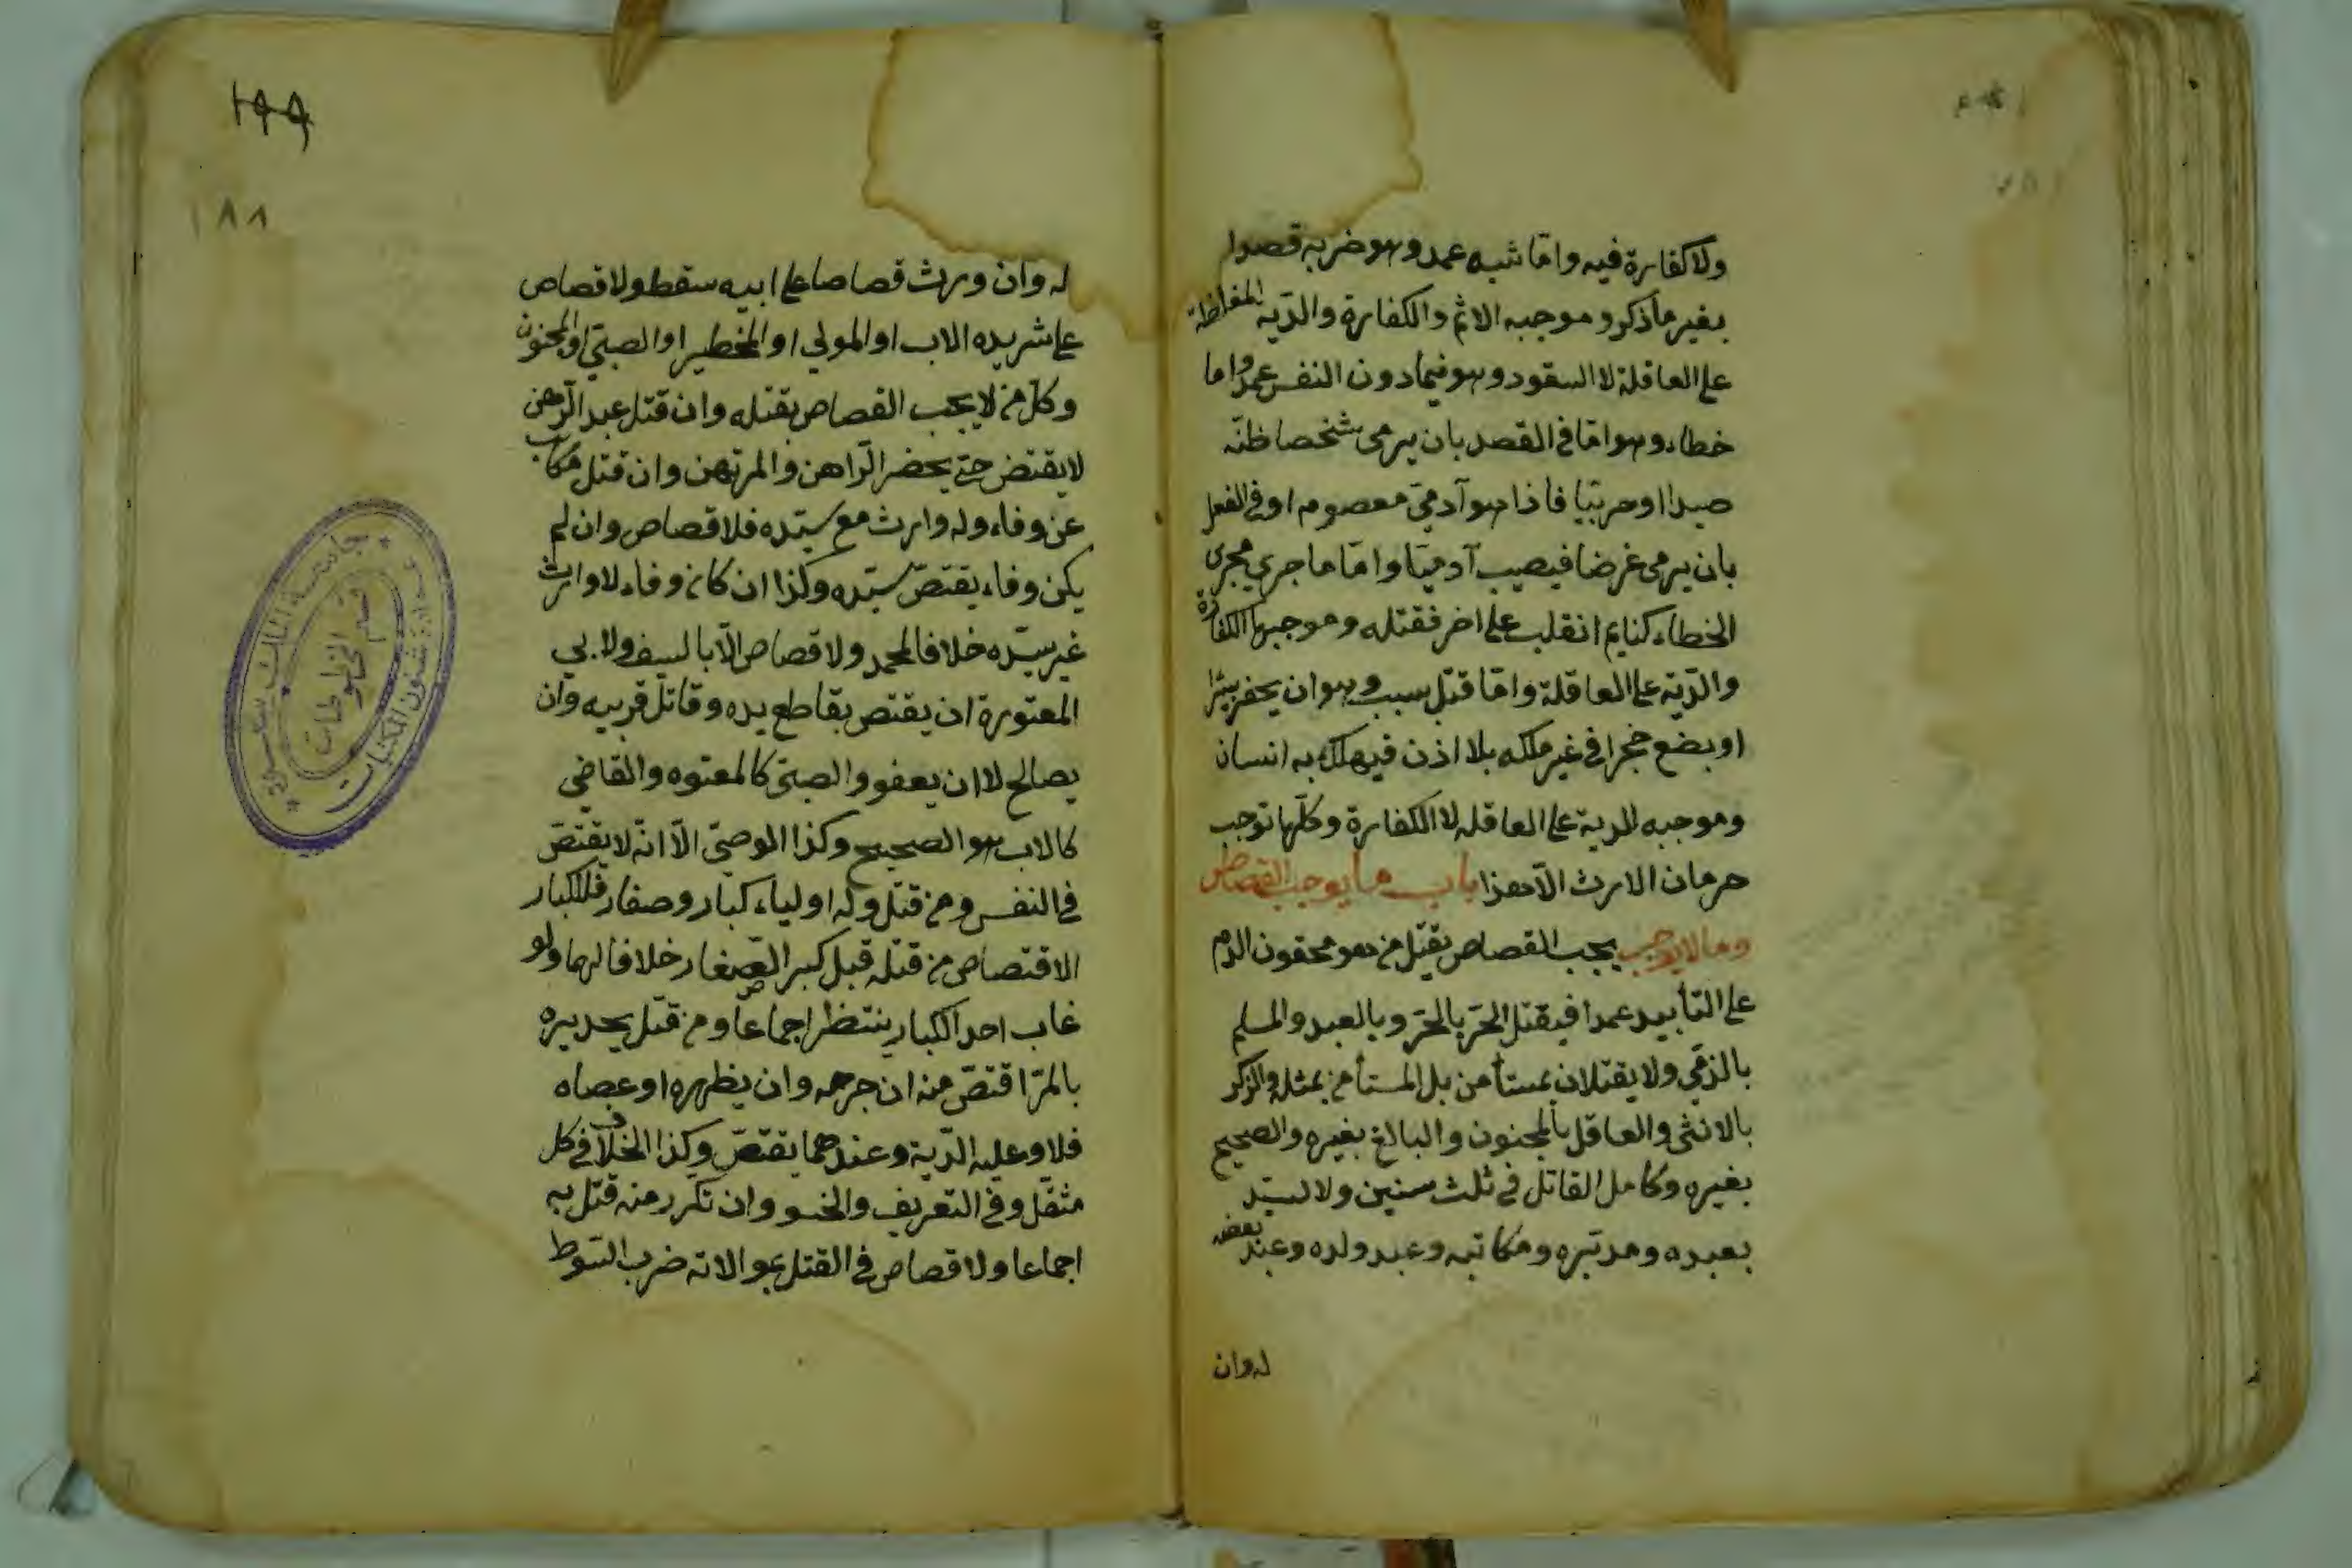 ولا كفارة فيه واما شبه عمد وهو ضربه قصدا
بغير ما ذكر وموجبه الاثم والكفارة والدّية المغلظة
على العاقلة لا القود وهو فيما دون النفس عمد واما
خطاء وهو امّا في القصد بان يرمى شخصا ظنّه
صيدا او حربيّا فاذا هو آدميّ معصوم او في الفعل
بان يرمى غرضا فيصيب آدميّا وامّا ما جرى مجرى
الخطاء كنايم انقلب على اخر فقتله وموجبهما الكفارة
والدّية على العاقلة وامّا قتل بسبب وهو ان يحفر بئرا
او يضع حجرا في غير ملكه بلا اذن فيهلك به انسان
وموجبه الدية على العاقله لا الكفارة وكلّها توجب
حرمان الارث الّا هذا باب ما يوجب القصاص
وما لا يوجب يجب القصاص بقتل من هو محقون الدم
على التأبيد عمدا فيقتل الحرّ بالحرّ وبالعبد والمسلم
بالذمّي ولا يقتلان بمستأمن بل المستأمن بمثله والذكر
بالانثى والعاقل بالمجنون والبالغ بغيره والصحيح
بغيره وكامل القاتل في ثلث سنين ولا السيّد
بعبده ومدبّره ومكاتبه وعبد ولده وعبد بعضه
له وان
١٩٩
١٨٨
له وان ورث قصاصا على ابيه سقط ولا قصاص
على شريده الاب او المولي او المخطير او الصبيّ او المجنون
وكل من لا يجب القصاص بقتله وان قتل عبد الرّهن
لا يقتض حتى يحضر الرّاهن والمرتهن وان قتل مكاتب
عن وفاء وله وارث مع سيّده فلا قصاص وان لم
يكن وفاء يقتصّ سيّده وكذا ان كان وفاء لا وارث
غير سيّده خلافا لمحمد ولا قصاص الّا بالسيف ولابي
المعتورة ان يقتص بقاطع يده وقاتل قريبه وان
يصالح لا ان يعفو والصبىّ كالمعتوه والقاضي
كالاب هو الصحيح وكذا الموصيّ الّا انّه لا يقتصّ
في النفس ومن قتل وله اولياء كبار وصغار فللكبار
الاقتصاص من قتله قبل كبر الصّغار خلافا لهما ولو
غاب احد الكبار ينتظر اجماعا ومن قتل بحديده
بالمرّ اقتصّ منه ان جرحه وان بظهره او عصاه
فلا وعليه الدّية وعندهما يقتصّ وكذا الخلاف في كل
مثقّل وفي التعريف والخنو وان تكرر منه قتل به
اجماعا ولا قصاص في القتل بموالاته ضرب السّوط
جامعة الملك سعود
عمادة شئون المكتبات
قسم المخطوطات